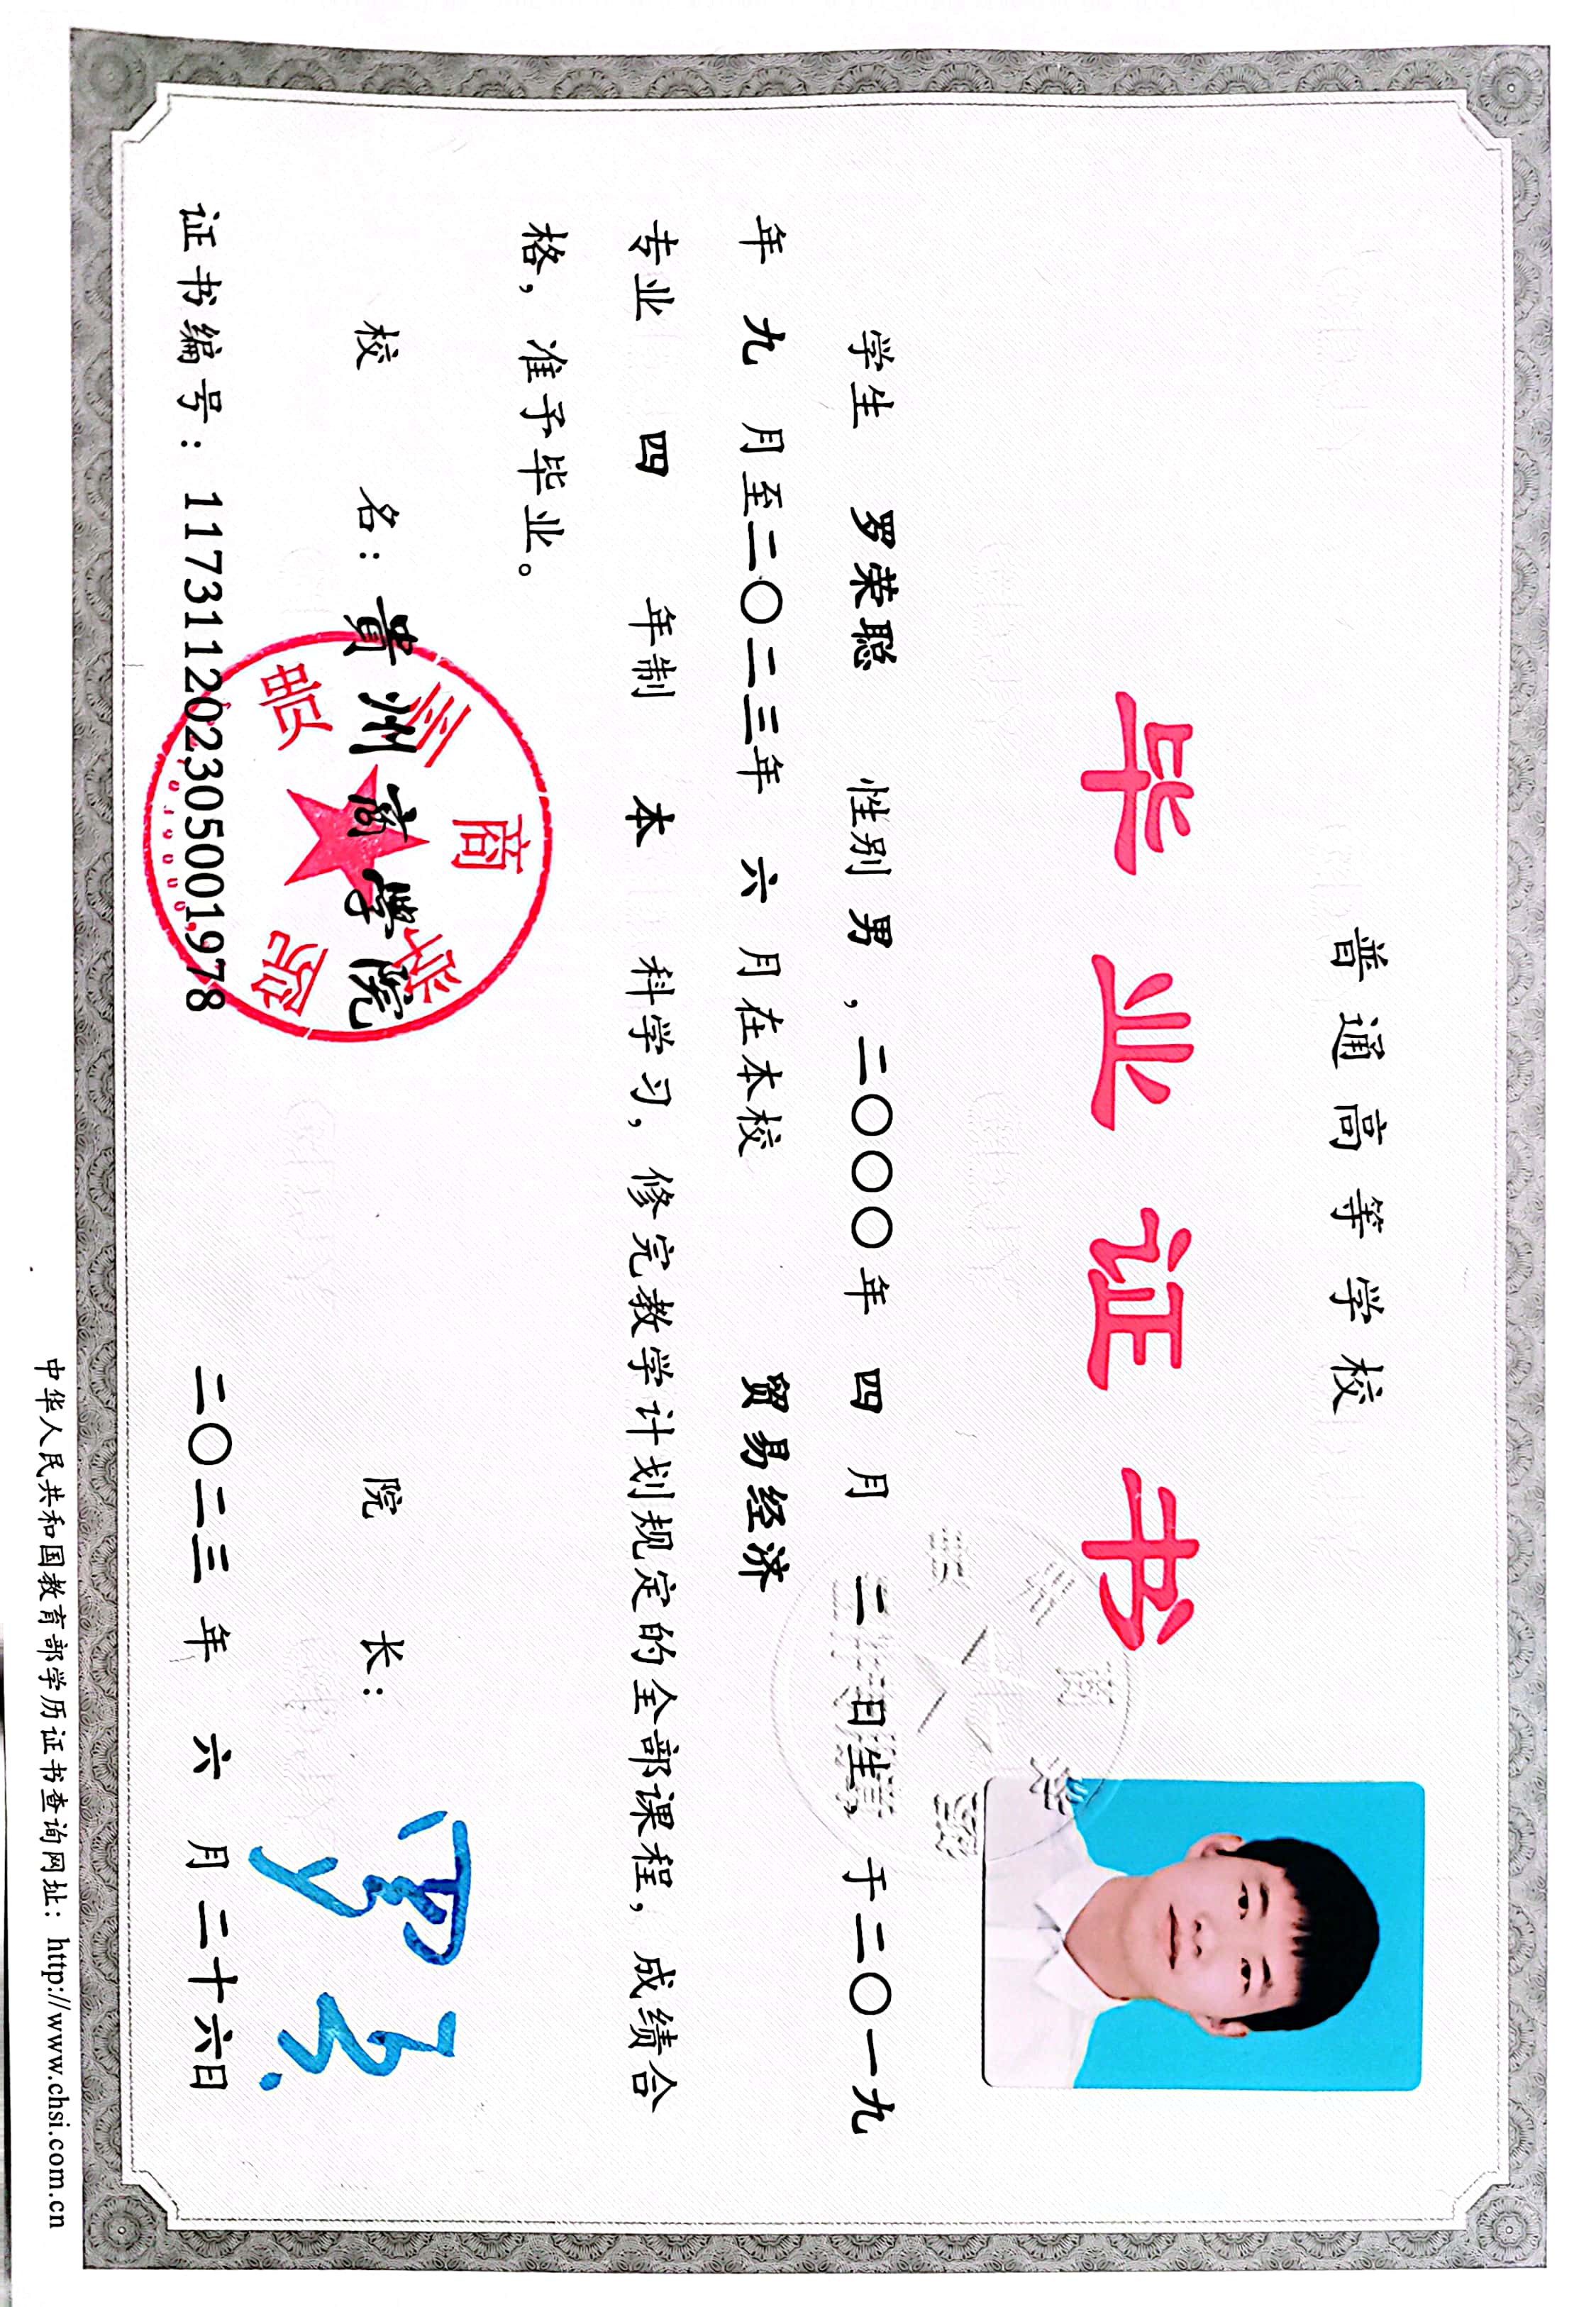 普通高等学校
毕业证书
学生 罗荣聪 性别 男，二〇〇〇年 四 月 二 日生，于二〇一九
年 九 月至二〇二三年 六 月在本校 贸易经济
专业 四 年制 本 科学习，修完教学计划规定的全部课程，成绩合
格，准予毕业。
校 名：貴州商学院 院 长：
贵州商学院
证书编号：117311202305001978 二〇二三 年 六 月 二十六日
中华人民共和国教育部学历证书查询网址：http://www.chsi.com.cn